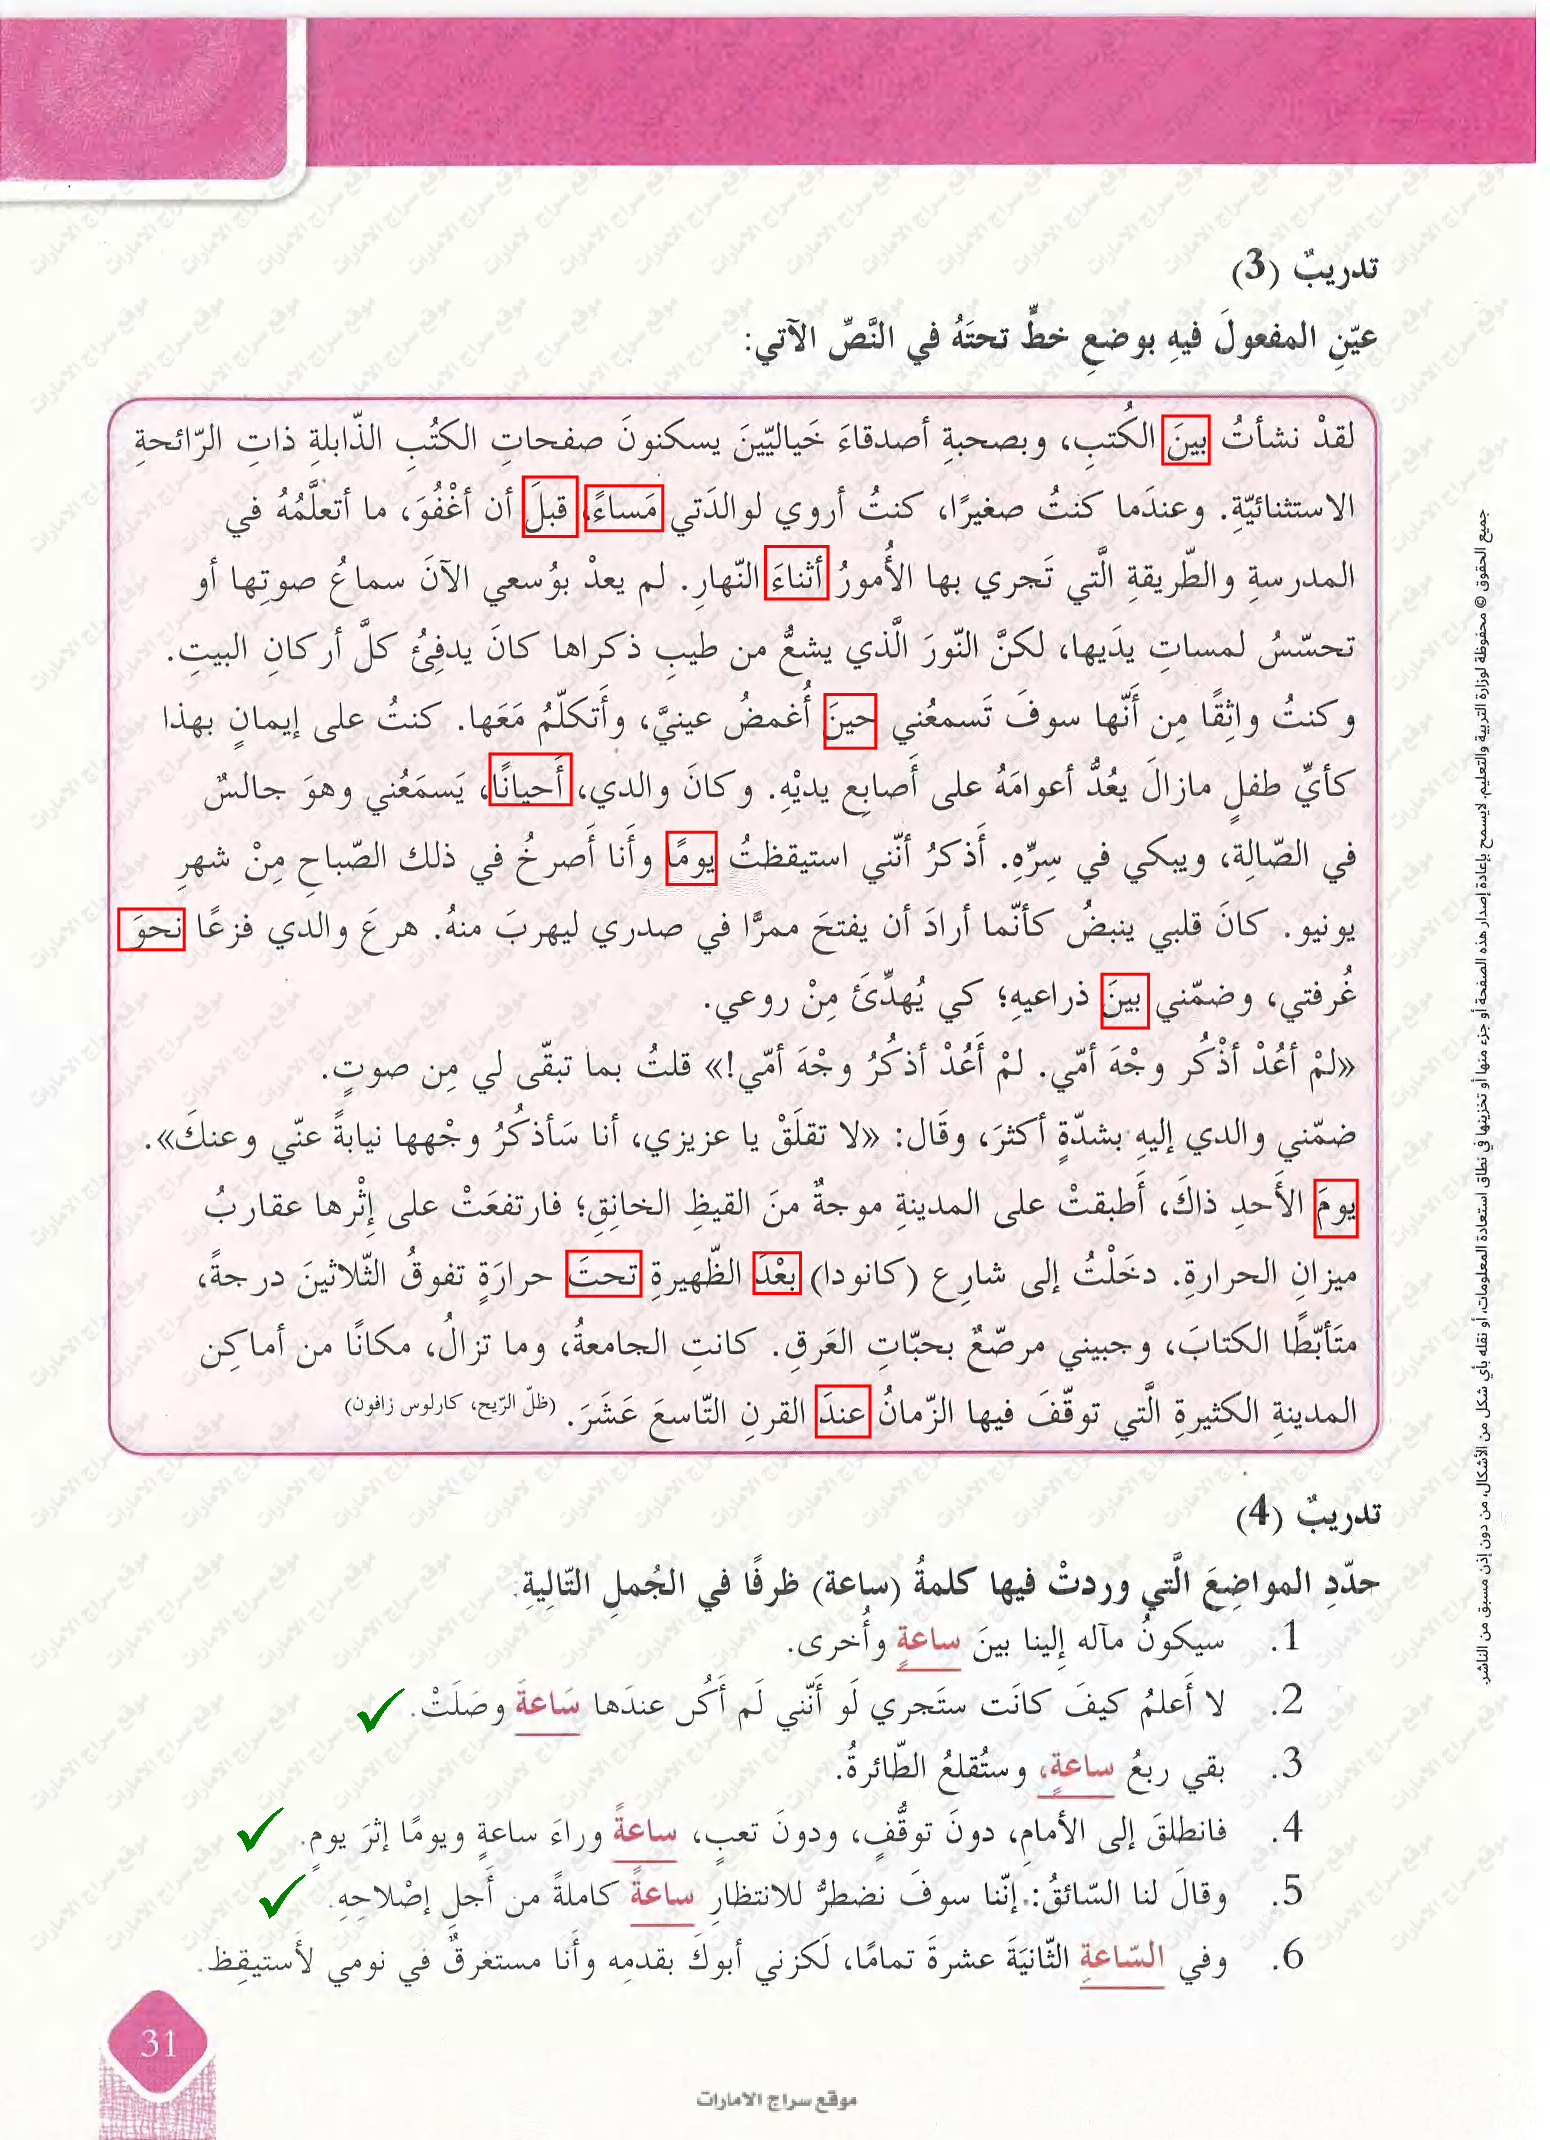 تدريبٌ (3)
عيّنِ المفعولَ فيهِ بوضعِ خطٍّ تحتَهُ في النَّصِّ الآتي:
لقدْ نشأتُ بينَ الكُتبِ، وبصحبةِ أصدقاءَ خَياليّينَ يسكنونَ صفحاتِ الكتُبِ الذّابلةِ ذاتِ الرّائحةِ
الاستثنائيّةِ. وعندَما كنتُ صغيرًا، كنتُ أروي لوالدَتي مَساءً، قبلَ أن أغْفُوَ، ما أتعلَّمُهُ في
المدرسةِ والطّريقةِ الَّتي تَجري بها الأُمورُ أثناءَ النّهارِ. لم يعدْ بوُسعي الآنَ سماعُ صوتِها أو
تحسّسُ لمساتِ يدَيها، لكنَّ النّورَ الَّذي يشعُّ من طيبِ ذكراها كانَ يدفِئُ كلَّ أركانِ البيتِ.
وكنتُ واثِقًا مِن أَنّها سوفَ تَسمعُني حينَ أُغمضُ عينيَّ، وأَتكلّمُ مَعَها. كنتُ على إيمانٍ بهذا
كأيِّ طفلٍ مازالَ يعُدُّ أعوامَهُ على أَصابِع يديْهِ. وكانَ والدي، أَحيانًا، يَسمَعُني وهوَ جالسٌ
في الصّالِة، ويبكي في سِرِّهِ. أَذكرُ أنّني استيقظتُ يومًا وأَنا أَصرخُ في ذلك الصّباحِ مِنْ شهرِ
يونيو. كانَ قلبي ينبضُ كأنّما أرادَ أن يفتحَ ممرًّا في صدري ليهربَ منهُ. هرعَ والدي فزعًا نحوَ
غُرفتي، وضمّني بينَ ذراعيهِ؛ كي يُهدِّئَ مِنْ روعي.
«لمْ أعُدْ أذْكُر وجْهَ أمّي. لمْ أَعُدْ أذكُرُ وجْهَ أمّي!» قلتُ بما تبقّى لي مِن صوتٍ.
ضمّني والدي إليهِ بشدّةٍ أكثرَ، وقَال: «لا تقلَقْ يا عزيزي، أنا سَأذكُرُ وجْهها نيابةً عنّي وعنكَ».
يومَ الأَحدِ ذاكَ، أَطبقتْ على المدينةِ موجةٌ منَ القيظِ الخانِقِ؛ فارتفعَتْ على إِثْرها عقاربُ
ميزانِ الحرارةِ. دخَلْتُ إلى شارِع (كانودا) بعْدَ الظّهيرةِ تحتَ حرارَةٍ تفوقُ الثّلاثينَ درجةً،
متَأبّطًا الكتابَ، وجبيني مرصّعٌ بحبّاتِ العَرقِ. كانتِ الجامعةُ، وما تزالُ، مكانًا من أماكِن
المدينةِ الكثيرةِ الَّتي توقّفَ فيها الزّمانُ عندَ القرنِ التّاسعَ عَشَرَ. (ظلّ الرّيح، كارلوس زافون)
تدريبٌ (4)
حدّدِ المواضِعَ الَّتي وردتْ فيها كلمةُ (ساعة) ظرفًا في الجُملِ التّالِيةِ.
1. سيكونُ مآله إلينا بينَ ساعةٍ وأُخرى.
2. لا أَعلمُ كيفَ كانَت ستَجري لَو أَنّني لَم أَكُن عندَها سَاعةَ وصَلَتْ.
3. بقي ربعُ ساعةٍ، وستُقلعُ الطّائرةُ.
4. فانطلقَ إلى الأمامِ، دونَ توقُّفٍ، ودونَ تعبٍ، ساعةً وراءَ ساعةٍ ويومًا إثرَ يومٍ.
5. وقالَ لنا السّائقُ: إنّنا سوفَ نضطرُّ للانتظارِ ساعةً كاملةً من أَجلِ إصْلاحِهِ.
6. وفي السّاعةِ الثّانيَةَ عشرةَ تمامًا، لَكزني أبوكَ بقدمِه وأَنا مستغرقٌ في نومي لأستيقِظ.
جميع الحقوق © محفوظة لوزارة التربية والتعليم. لايسمح بإعادة إصدار هذه الصفحة أو جزء منها أو تخزينها في نطاق استعادة المعلومات، أو نقله بأي شكل من الأشكال، من دون إذن مسبق من الناشر.
31
موقع سراج الامارات